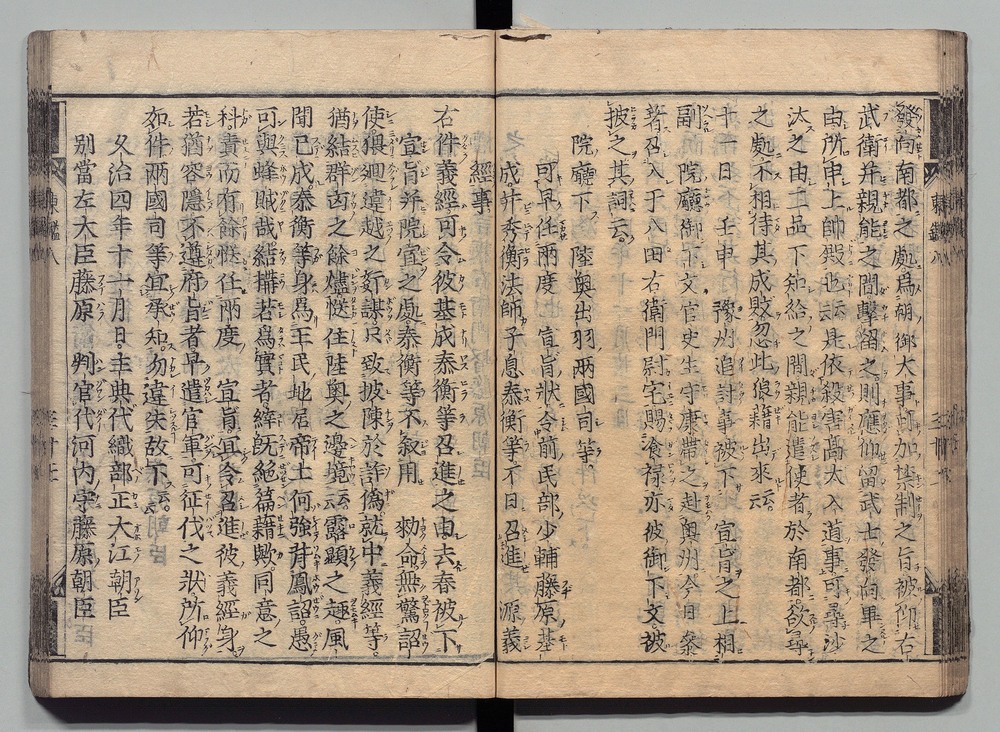 發向南都之處爲朝御大事可加禁制之旨被仰右
武衛并親能之間擊留之則應仰留武士發向畢之
由所申上帥殿也云云是依殺害高太入道事可尋沙
汰之由二品下知給之間親能遣使者於南都欲尋
之處不相待其成敗忽此狼藉出來云云
十一日壬申豫州追討事被下宣旨之上相
副院廳御下文官史生守康帶之赴奧州今日參
著召入于八田右衛門尉宅賜食祿亦彼御下文被
披之其詞云
院廳下陸奧出羽兩國司等
可早任兩度宣旨狀令前民部少輔藤原基
成并秀衡法師子息泰衡等不日召進源義
經事
右件義經可令彼基成泰衡等召進之由去春被下
宣旨并院宣之處泰衡等不叙用勅命無驚詔
使猥廻違越之奸謀只致披陳於詐僞就中義經等
猶結群凶之餘燼慥住陸奧之邊境云云露顯之趣風
聞已成泰衡等身爲王民地居帝土何強背鳳詔愚
可與蜂賊哉結搆若爲實者縡既絶篇籍歟同意之
科責而有餘慥任兩度宣旨宜令召進彼義經身
若猶容隱不遵府旨者早遣官軍可征伐之狀所仰
如件兩國司等宜承知勿違失故下云云
文治四年十一月日主典代織部正大江朝臣
別當左大臣藤原判官代河内守藤原朝臣
東鑑八